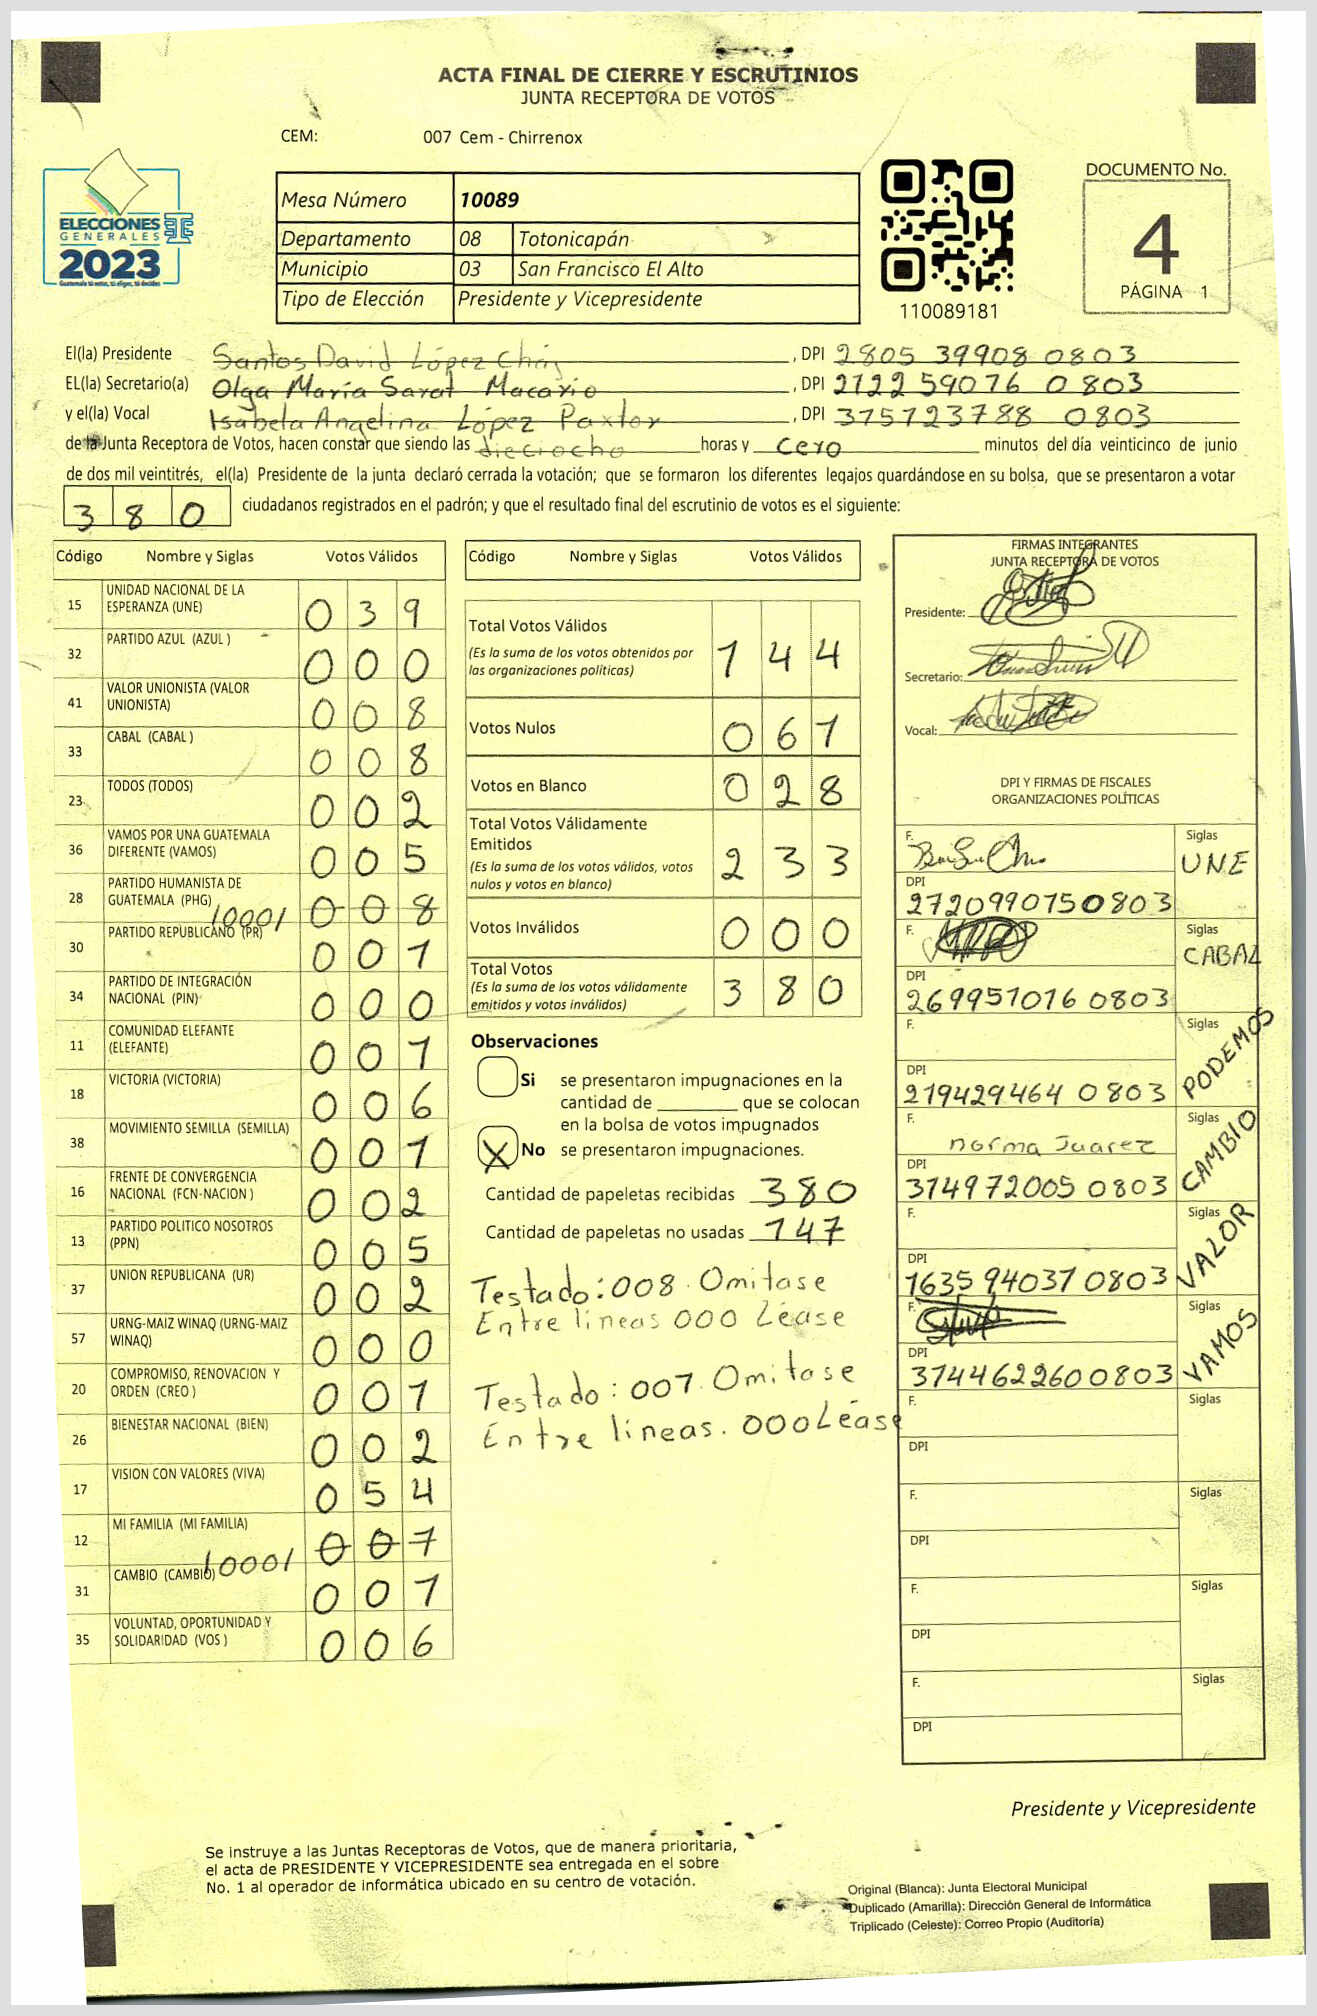 ACTA FINAL DE CIERRE Y ESCRUTINIOS
JUNTA RECEPTORA DE VOTOS
CEM: 007 Cem - Chirrenox
ELECCIONES
GENERALES
2023
Guatemala tú votas, tú eliges, tú decides
Mesa Número 10089
Departamento 08 Totonicapán
Municipio 03 San Francisco El Alto
Tipo de Elección Presidente y Vicepresidente
110089181
DOCUMENTO No.
4
PÁGINA 1
El(la) Presidente Santos David López Cháj, DPI 2805 39908 0803
EL(la) Secretario(a) Olga María Sarat Macario, DPI 2122 59076 0803
y el(la) Vocal Isabela Angelina López Paxtor, DPI 375723788 0803
de la Junta Receptora de Votos, hacen constar que siendo las dieciocho horas y cero minutos del día veinticinco de junio
de dos mil veintitrés, el(la) Presidente de la junta declaró cerrada la votación; que se formaron los diferentes legajos guardándose en su bolsa, que se presentaron a votar
380 ciudadanos registrados en el padrón; y que el resultado final del escrutinio de votos es el siguiente:
Código Nombre y Siglas Votos Válidos
15 UNIDAD NACIONAL DE LA ESPERANZA (UNE) 039
32 PARTIDO AZUL (AZUL ) 000
41 VALOR UNIONISTA (VALOR UNIONISTA) 008
33 CABAL (CABAL ) 008
23 TODOS (TODOS) 002
36 VAMOS POR UNA GUATEMALA DIFERENTE (VAMOS) 005
28 PARTIDO HUMANISTA DE GUATEMALA (PHG) 10001 008
30 PARTIDO REPUBLICANO (PR) 001
34 PARTIDO DE INTEGRACIÓN NACIONAL (PIN) 000
11 COMUNIDAD ELEFANTE (ELEFANTE) 001
18 VICTORIA (VICTORIA) 006
38 MOVIMIENTO SEMILLA (SEMILLA) 001
16 FRENTE DE CONVERGENCIA NACIONAL (FCN-NACION ) 002
13 PARTIDO POLITICO NOSOTROS (PPN) 005
37 UNION REPUBLICANA (UR) 002
57 URNG-MAIZ WINAQ (URNG-MAIZ WINAQ) 000
20 COMPROMISO, RENOVACION Y ORDEN (CREO ) 001
26 BIENESTAR NACIONAL (BIEN) 002
17 VISION CON VALORES (VIVA) 054
12 MI FAMILIA (MI FAMILIA) 10001 007
31 CAMBIO (CAMBIO) 001
35 VOLUNTAD, OPORTUNIDAD Y SOLIDARIDAD (VOS ) 006
Código Nombre y Siglas Votos Válidos
Total Votos Válidos 144
(Es la suma de los votos obtenidos por
las organizaciones políticas)
Votos Nulos 061
Votos en Blanco 028
Total Votos Válidamente
Emitidos 233
(Es la suma de los votos válidos, votos
nulos y votos en blanco)
Votos Inválidos 000
Total Votos 380
(Es la suma de los votos válidamente
emitidos y votos inválidos)
Observaciones
Si se presentaron impugnaciones en la
cantidad de ________ que se colocan
en la bolsa de votos impugnados
X No se presentaron impugnaciones.
Cantidad de papeletas recibidas 380
Cantidad de papeletas no usadas 147
Testado: 008. Omitase
Entre lineas 000 Léase
Testado: 007. Omitase
Entre lineas. 000 Léase
FIRMAS INTEGRANTES
JUNTA RECEPTORA DE VOTOS
Presidente:
Secretario:
Vocal:
DPI Y FIRMAS DE FISCALES
ORGANIZACIONES POLÍTICAS
F. Siglas UNE
DPI 2720990750803
F. Siglas CABAL
DPI 269951016 0803
F. Siglas PODEMOS
DPI 219429464 0803
F. norma Juarez Siglas CAMBIO
DPI 314972005 0803
F. Siglas VALOR
DPI 1635 94037 0803
F. Siglas VAMOS
DPI 3744622600803
F. Siglas
DPI
F. Siglas
DPI
F. Siglas
DPI
F. Siglas
DPI
Presidente y Vicepresidente
Se instruye a las Juntas Receptoras de Votos, que de manera prioritaria,
el acta de PRESIDENTE Y VICEPRESIDENTE sea entregada en el sobre
No. 1 al operador de informática ubicado en su centro de votación.
Original (Blanca): Junta Electoral Municipal
Duplicado (Amarilla): Dirección General de Informática
Triplicado (Celeste): Correo Propio (Auditoría)